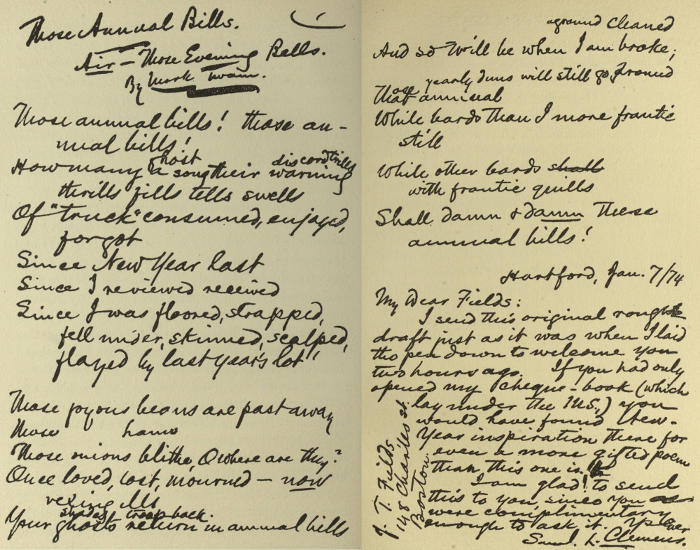 Those Annual Bills.
Air – Those Evening Bells.
By Mark Twain.
Those annual bills! those an-
nual bills!
How many a song their discord trills
Of "truck" consumed, enjoyed,
forgot
Since New Year last
Since I was floored, strapped,
fell under, skinned, scalped,
flayed by last year's lot!
Those joyous beans are past away
Those hams
Those onions blithe, O where are they?
Once loved, lost, mourned — now
vexing ills
Your ghosts return in annual bills
aground cleaned
And so 'twill be when I am broke;
yearly duns will still go round
Those annual
While bards than I more frantic
still
While other bards shall
with frantic quills
Shall damn & damn these
annual bills!
Hartford, Jan. 7/74
My Dear Fields:
I send this original rough
draft just as it was when I laid
the pen down to welcome you
two hours ago. If you had only
opened my cheque-book (which
lay under the MS.) you
would have found New-
Year inspiration there for
even a more gifted poem
than this one is.
I am glad to send
this to you, since you
were complimentary
enough to ask it. Ys Ever
Saml. L. Clemens.
J. T. Fields
148 Charles st.
Boston